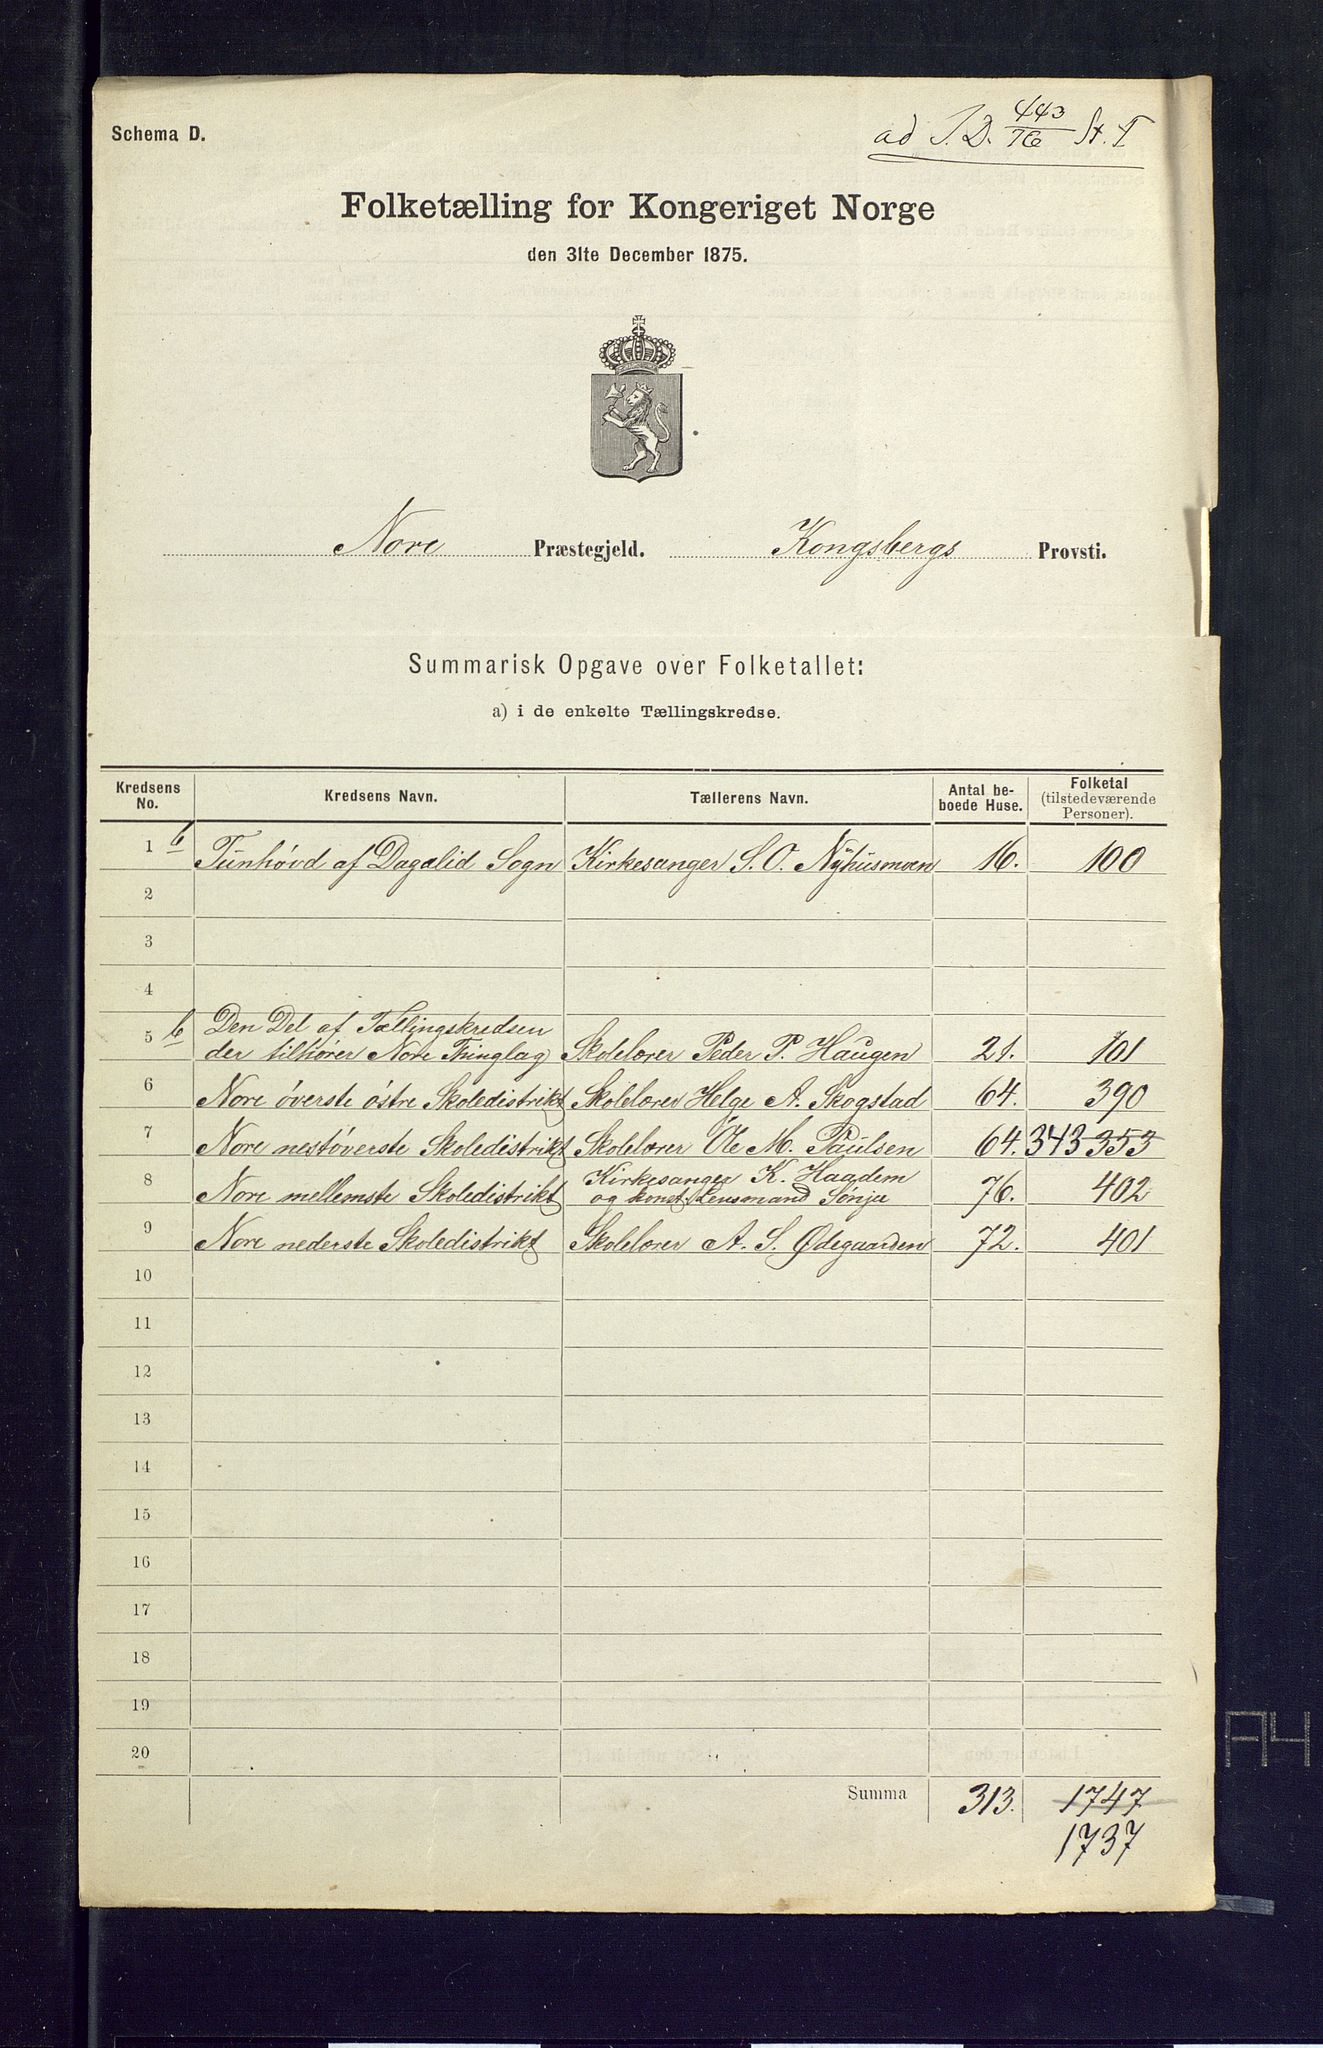 Schema D.
ad J.D. 443/76 St. T
Folketælling for Kongeriget Norge
den 31te December 1875.
Nore Præstegjeld. Kongsbergs Provsti.
Summarisk Opgave over Folketallet:
a) i de enkelte Tællingskredse.
Kredsens No. Kredsens Navn. Tællerens Navn. Antal beboede Huse. Folketal (tilstedeværende Personer).
1 b Tunhövd af Dagalid Sogn Kirkesanger S. O. Nyhusmoen 16. 100
2
3
4
5 b Den Del af Tællingskredsen
der tilhörer Nore Thinglag Skolelærer Peder P. Haugen 21. 101
6 Nore överste östre Skoledistrikt Skolelærer Helge A. Skogstad 64. 390
7 Nore nestöverste Skoledistrikt Skolelærer Ole M. Paulsen 64. 343 353
8 Nore mellemste Skoledistrikt Kirkesanger K. Haadem
og konst. Lensmand Sönju 76. 402
9 Nore nederste Skoledistrikt Skolelærer A. S. Ødegaarden 72. 401
10
11
12
13
14
15
16
17
18
19
20
Summa 313. 1747
1737
A4